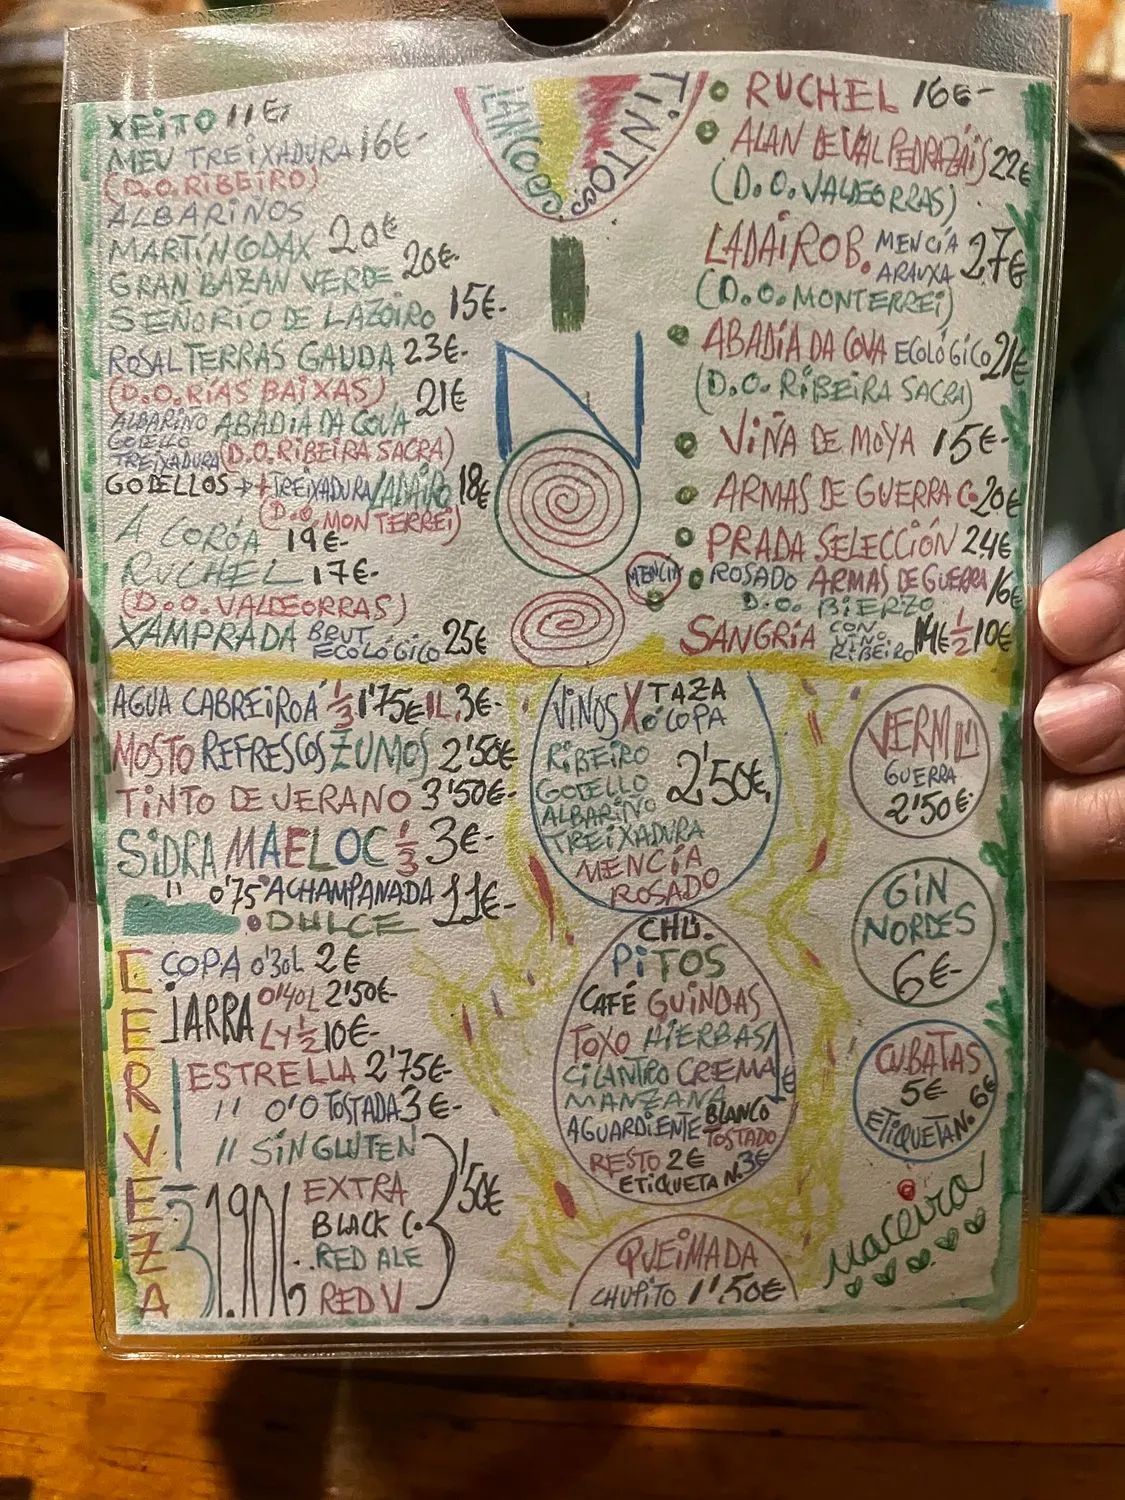 BLANCOS
TINTOS
XEITO 11€
MEU TREIXADURA 16€-
(D.O. RIBEIRO)
ALBARIÑOS
MARTÍN CODAX 20€
GRAN BAZAN VERDE 20€-
SEÑORÍO DE LAZOIRO 15€-
ROSAL TERRAS GAUDA 23€-
(D.O. RÍAS BAIXAS)
ALBARIÑO ABADIA DA COVA 21€
GODELLO
TREIXADURA (D.O. RIBEIRA SACRA)
GODELLOS → + TREIXADURA/LADAIRO 18€
(D.O. MONTERREI)
A COROA 19€-
RUCHEL 17€-
(D.O. VALDEORRAS)
XAMPRADA BRUT ECOLÓGICO 25€
RUCHEL 16€-
ALAN DE VAL PEDRAZAIS 22€
(D.O. VALDEORRAS)
LADAIRO B. MENCÍA ARAUXA 27€
(D.O. MONTERREI)
ABADÍA DA COVA ECOLÓGICO 21€
(D.O. RIBEIRA SACRA)
VIÑA DE MOYA 15€-
ARMAS DE GUERRA C. 20€
PRADA SELECCIÓN 24€
MENCÍA
ROSADO ARMAS DE GUERRA 16€
D.O. BIERZO
SANGRÍA CON VINO RIBEIRO 14€ 1/2 10€
AGUA CABREIROÁ 1/3 1'75€ 1L. 3€-
MOSTO REFRESCOS ZUMOS 2'50€
TINTO DE VERANO 3'50€-
SIDRA MAELOC 1/3 3€-
" 0'75 ACHAMPANADA 11€-
• DULCE
CERVEZA
COPA 0'30L 2€
JARRA 0'40L 2'50€-
LY 1/2 10€-
ESTRELLA 2'75€
" 0'0 TOSTADA 3€-
" SIN GLUTEN
1906
EXTRA
BLACK C.
RED ALE
RED V
'50€
VINOS X TAZA
O COPA
RIBEIRO
GODELLO
ALBARIÑO
TREIXADURA
MENCÍA
ROSADO
2'50€
CHU.
PITOS
CAFÉ GUINDAS
TOXO HIERBAS
CILANTRO CREMA
MANZANA
AGUARDIENTE BLANCO
TOSTADO
RESTO 2€
ETIQUETA N. 3€
QUEIMADA
CHUPITO 1'50€
VERMU
GUERRA
2'50€-
GIN
NORDES
6€-
CUBATAS
5€
ETIQUETA N. 6€
Maceira